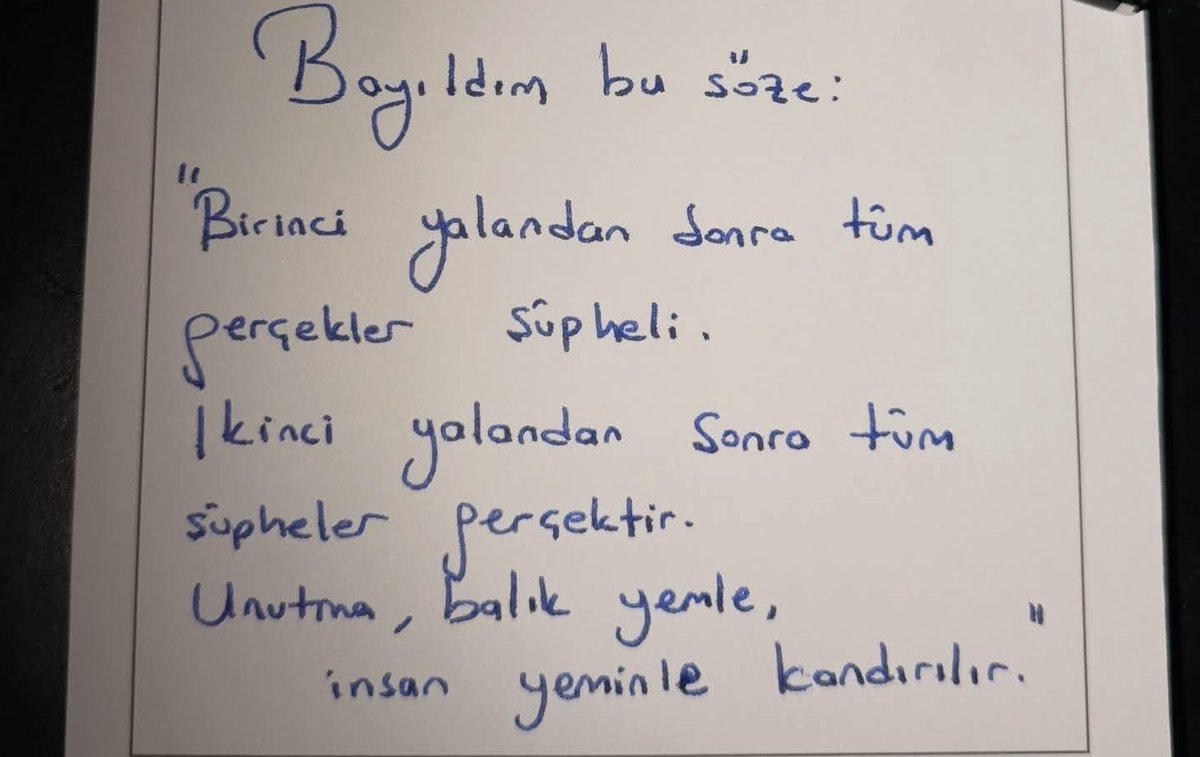 Bayıldım bu söze:
"Birinci yalandan sonra tüm
gerçekler şüpheli.
İkinci yalandan sonra tüm
şüpheler gerçektir.
Unutma, balık yemle,
insan yeminle kandırılır."